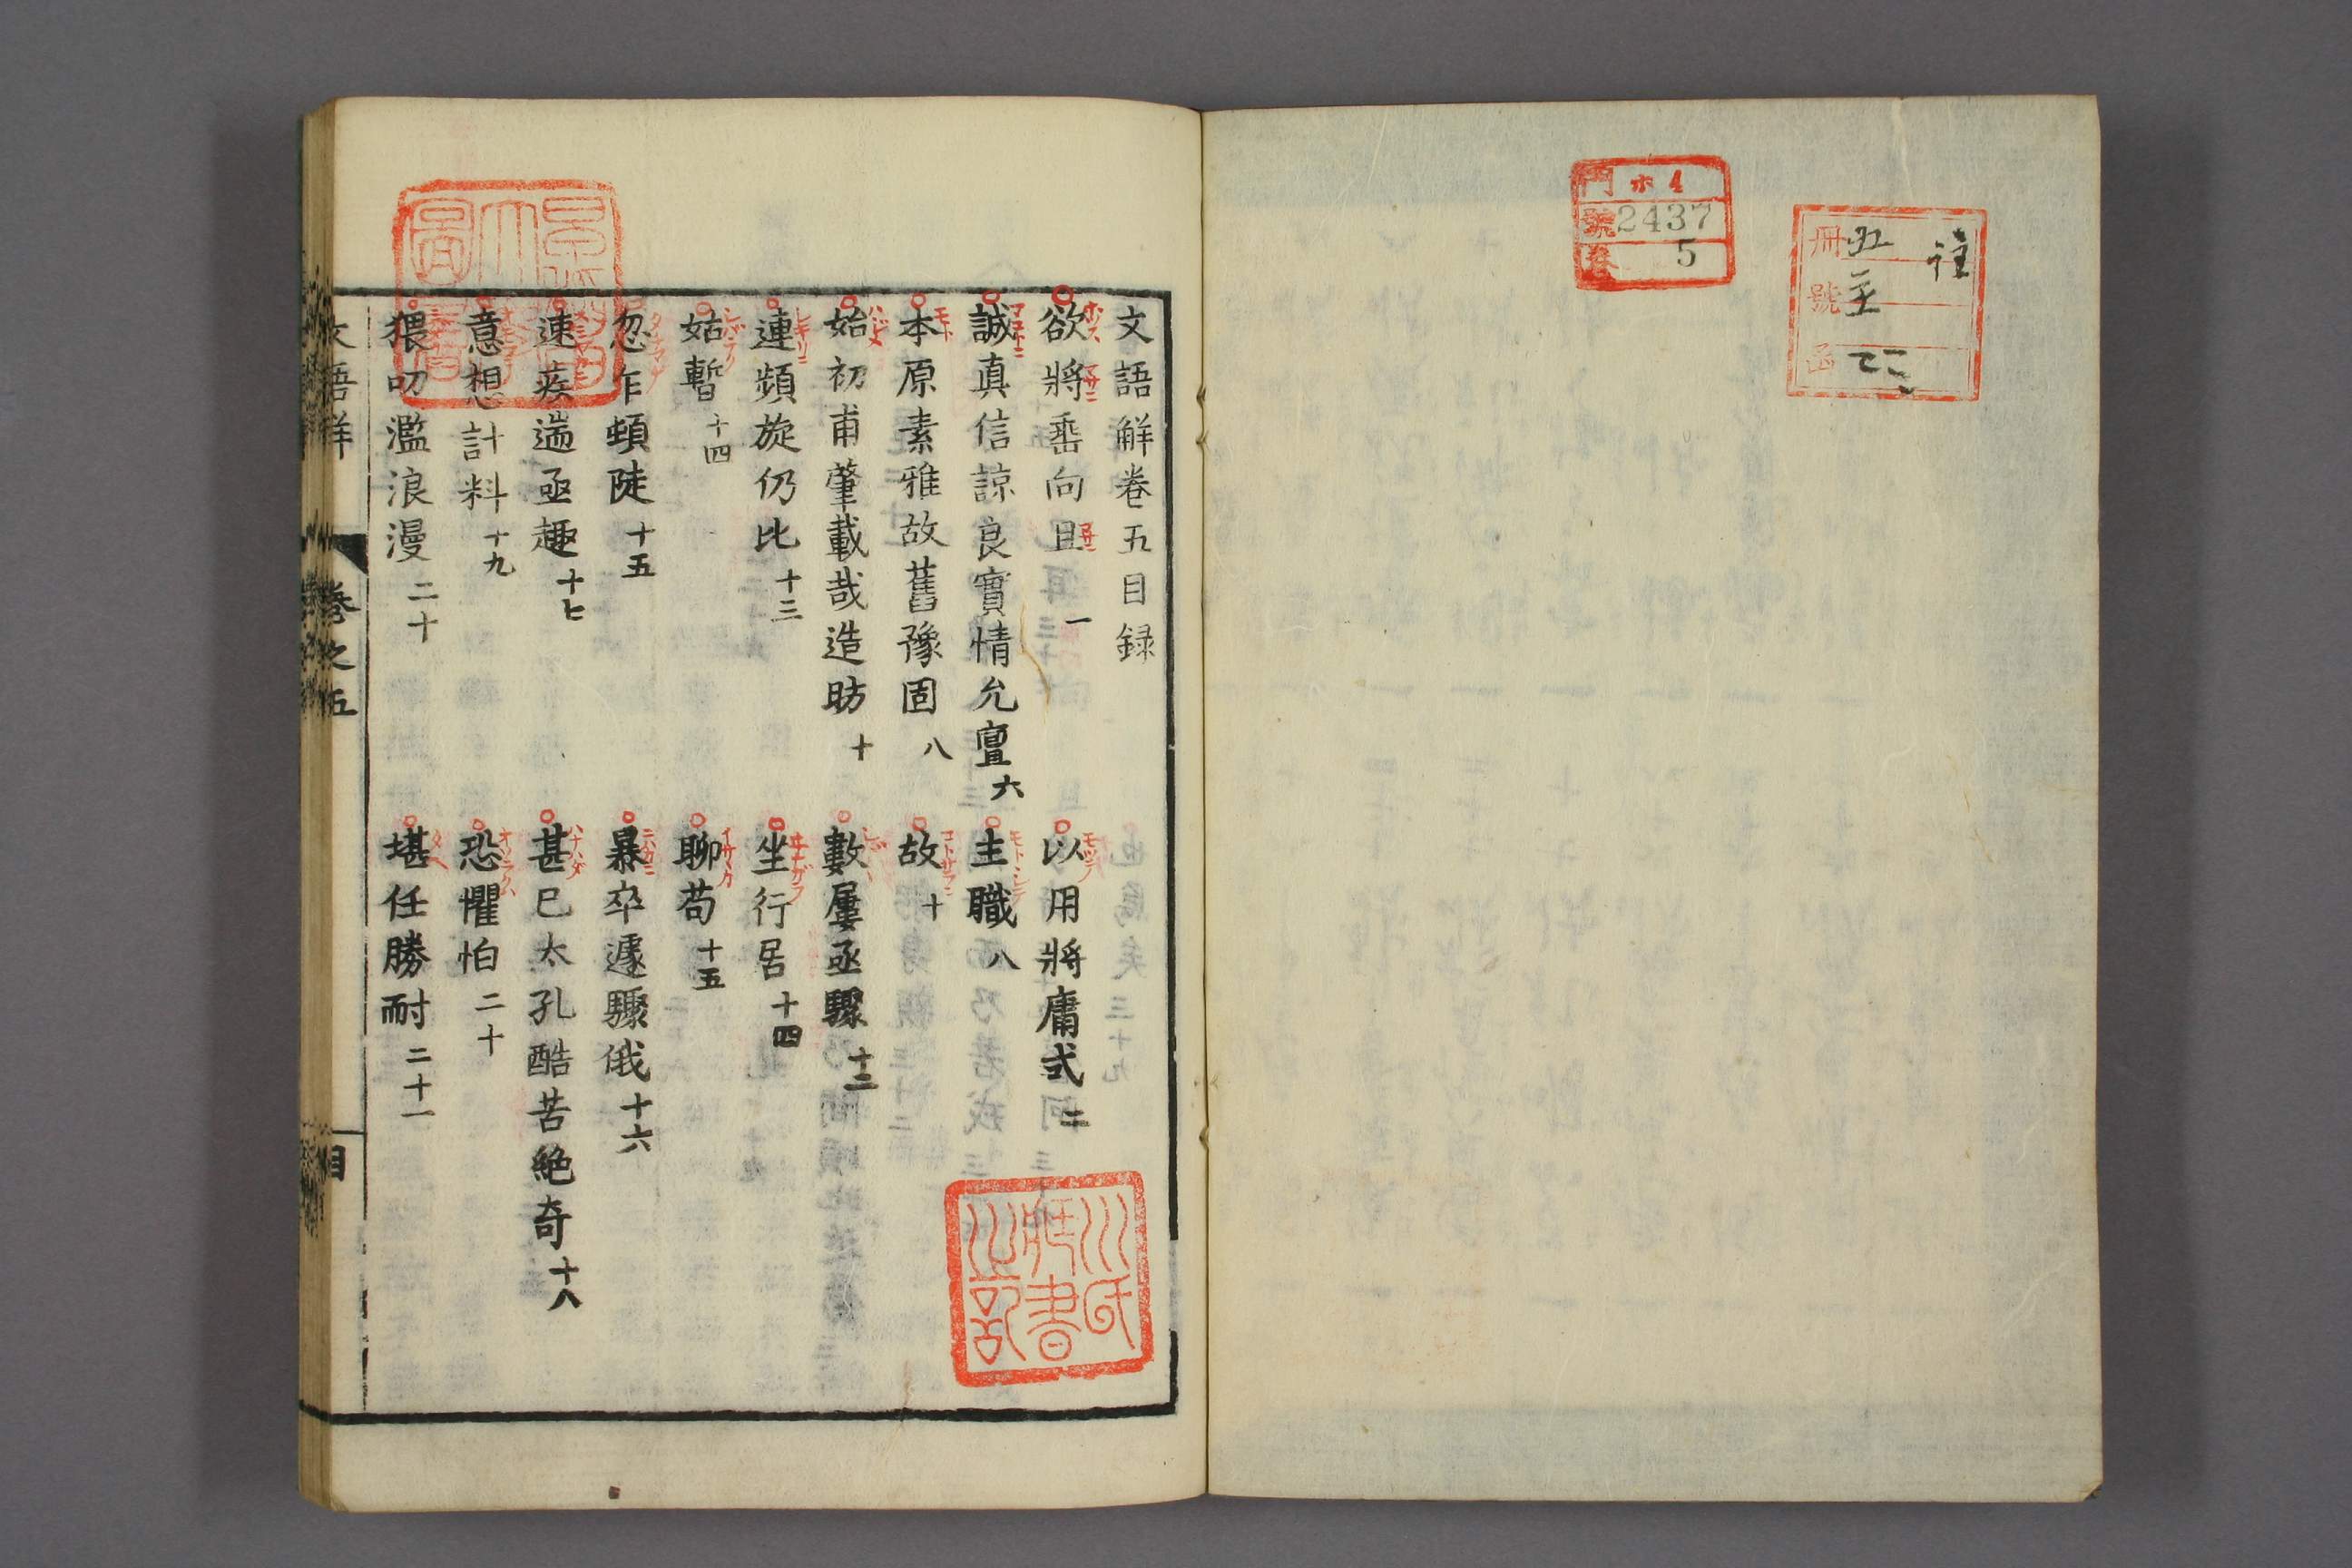 門 ホ4
號 2437
卷 5
註
冊 五
號
函
文語解卷五目録
欲將垂向且 一
以用將庸式 二
誠真信諒良實情允亶 六
主職 八
本原素雅故舊豫固 八
故 十
始初甫肇載哉造昉 十
數屢亟驟 十二
連頻旋仍比 十三
坐行居 十四
姑暫 十四
聊苟 十五
忽乍頓陡 十五
暴卒遽驟俄 十六
速疾遄亟趣 十七
甚已太孔酷苦絶奇 十八
意想計料 十九
恐懼怕 二十
猥叨濫浪漫 二十
堪任勝耐 二十一
文語解 卷之五 目